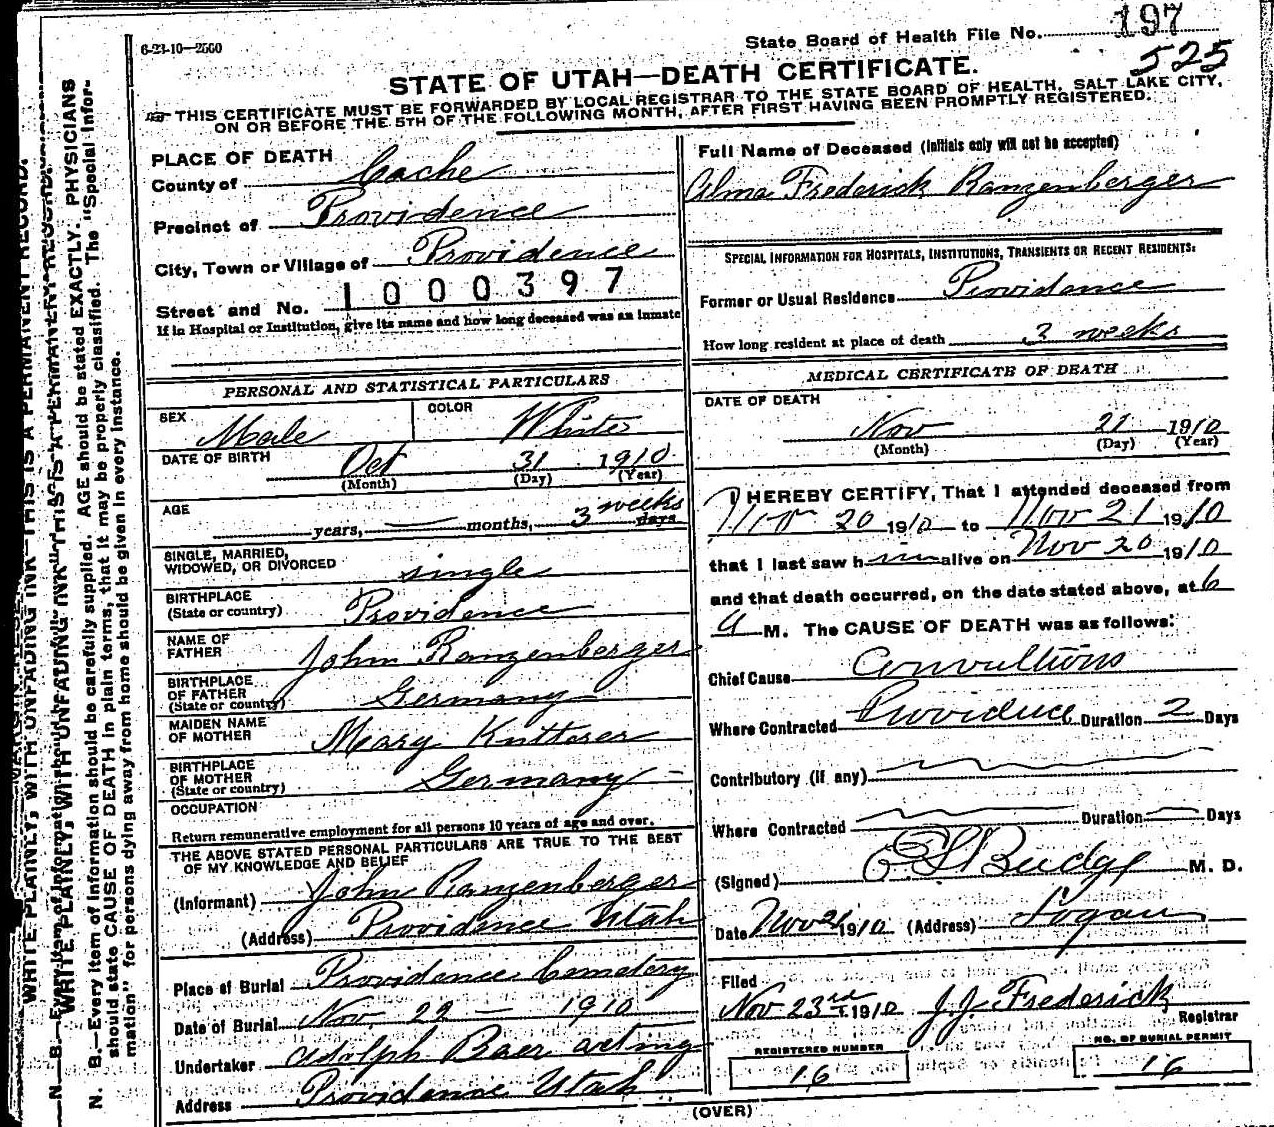 6-23-10—2560
State Board of Health File No. 197
525
STATE OF UTAH—DEATH CERTIFICATE.
THIS CERTIFICATE MUST BE FORWARDED BY LOCAL REGISTRAR TO THE STATE BOARD OF HEALTH, SALT LAKE CITY,
ON OR BEFORE THE 5TH OF THE FOLLOWING MONTH, AFTER FIRST HAVING BEEN PROMPTLY REGISTERED.
PLACE OF DEATH
County of Cache
Precinct of Providence
City, Town or Village of Providence
Street and No. 1000397
If in Hospital or Institution, give its name and how long deceased was an inmate
Full Name of Deceased (Initials only will not be accepted)
Alma Frederick Ranzenberger
SPECIAL INFORMATION FOR HOSPITALS, INSTITUTIONS, TRANSIENTS OR RECENT RESIDENTS:
Former or Usual Residence Providence
How long resident at place of death 3 weeks
PERSONAL AND STATISTICAL PARTICULARS
SEX Male
COLOR White
DATE OF BIRTH Oct 31 1910
(Month) (Day) (Year)
AGE years, — months, 3 weeks days
SINGLE, MARRIED,
WIDOWED, OR DIVORCED single
BIRTHPLACE
(State or country) Providence
NAME OF
FATHER John Ranzenberger
BIRTHPLACE
OF FATHER
(State or country) Germany
MAIDEN NAME
OF MOTHER Mary Kutterer
BIRTHPLACE
OF MOTHER
(State or country) Germany —
OCCUPATION
Return remunerative employment for all persons 10 years of age and over.
THE ABOVE STATED PERSONAL PARTICULARS ARE TRUE TO THE BEST
OF MY KNOWLEDGE AND BELIEF
(Informant) John Ranzenberger
(Address) Providence Utah
Place of Burial Providence Cemetery
Date of Burial Nov. 22 — 1910
Undertaker Adolph Baer acting
Address Providence Utah
MEDICAL CERTIFICATE OF DEATH
DATE OF DEATH
Nov 21 1910
(Month) (Day) (Year)
I HEREBY CERTIFY, That I attended deceased from
Nov 20 1910 to Nov 21 1910
that I last saw him alive on Nov 20 1910
and that death occurred, on the date stated above, at 6
A M. The CAUSE OF DEATH was as follows:
Chief Cause Convultions
Where Contracted Providence Duration 2 Days
Contributory (if any)
Where Contracted Duration — Days
(Signed) Budge M. D.
Date Nov 21 1910 (Address) Logan
Filed
Nov 23rd 1910 J.J. Frederick
Registrar
REGISTERED NUMBER
16
NO. OF BURIAL PERMIT
16
(OVER)
WRITE PLAINLY, WITH UNFADING INK—THIS IS A PERMANENT RECORD.
N. B.—Every item of information should be carefully supplied. AGE should be stated EXACTLY. PHYSICIANS
should state CAUSE OF DEATH in plain terms, that it may be properly classified. The "Special Infor-
mation" for persons dying away from home should be given in every instance.